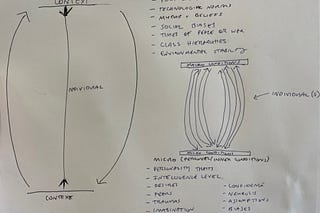 CONTEXT
INDIVIDUAL
CONTEXT
- TECHNOLOGICAL NORMS
- MYTHS + BELIEFS
- SOCIAL BIASES
- TIMES OF PEACE OR WAR
- CLASS HIERARCHIES
- ENVIRONMENTAL STABILITY
MACRO CONDITIONS
INDIVIDUAL(S)
MICRO CONDITIONS
MICRO (INNER CONDITIONS)
- PERSONALITY TRAITS
- INTELLIGENCE LEVEL
- DESIRES
- CONFIDENCE
- FEARS
- NEUROSIS
- TRAUMAS
- ASSUMPTIONS
- IMAGINATION
- BIASES